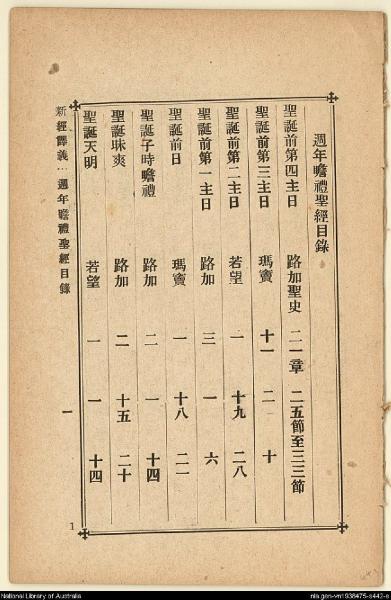 週年瞻禮聖經目錄
聖誕前第四主日 路加聖史 二一章 二五節至三三節
聖誕前第三主日 瑪竇 十一 二 十
聖誕前第二主日 若望 一 十九 二八
聖誕前第一主日 路加 三 一 六
聖誕前日 瑪竇 一 十八 二一
聖誕子時瞻禮 路加 二 一 十四
聖誕昧爽 路加 二 十五 二十
聖誕天明 若望 一 一 十四
新經譯義：週年瞻禮聖經目錄 一
1
National Library of Australia
nla.gen-vn1938475-s442-e